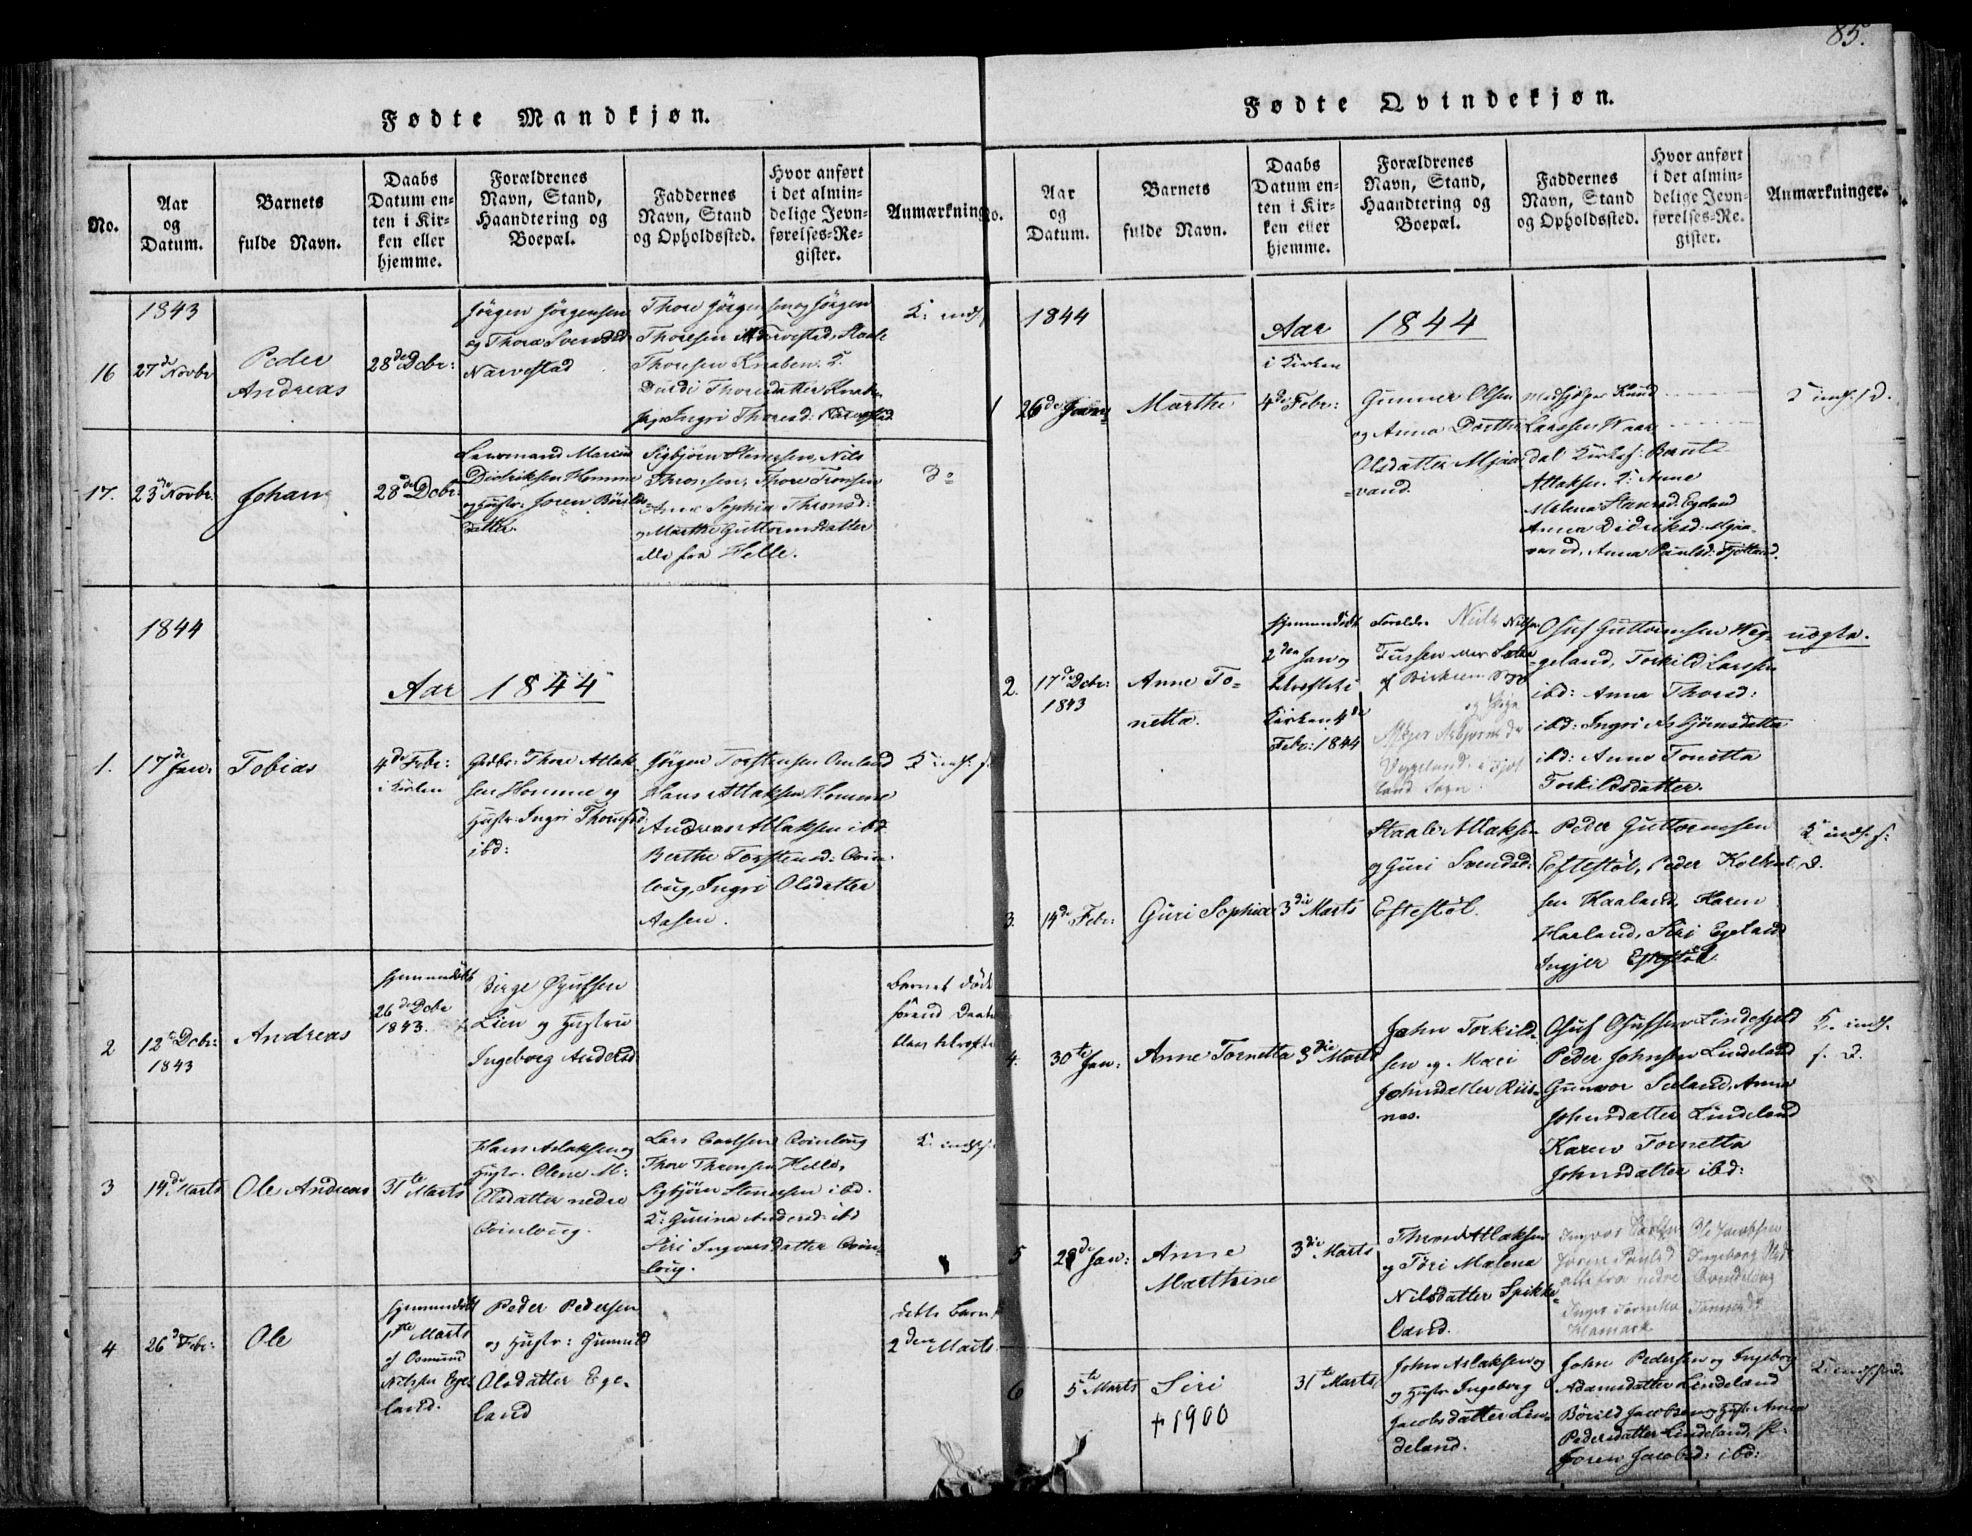 85.
Fødte Mandkjøn.
No.
Aar
og
Datum.
Barnets
fulde Navn.
Daabs
Datum en-
ten i Kir-
ken eller
hjemme.
Forældrenes
Navn, Stand,
Haandtering og
Boepæl.
Faddernes
Navn, Stand
og Opholdssted.
Hvor anført
i det almin-
delige Jevn-
førelses-Re-
gister.
Anmærkning
1843
16
27de Novbr
Peder
Andreas
28de Dcbr:
Jörgen Jörgensen
og Thora Svendsd:
Narvestad
Thore Jörgensen og Jörgen
Thoresen Narvestad, Staale
Thoresen Knaben. K.
Thoresdatter Knaben
Ingri Thoresd: Narvestad
K: indf.
17.
23de Novbr:
Johan
28de Dcbr:
Marcus
Didriksen Homme
og Hustr: Soren Börilds-
datter.
Sigbjörn Stenersen, Nils
Thronsen, Thore Tronsen
Ane Sophia Thronsd:
og Marthe Guttormsdatter
alle fra Helle.
1844
Aar 1844
1.
17de Jan:
Tobias
4de Febr:
i Kirken
Gdbr: Thore Atlak-
sen Homme og
Hustr: Ingri Thorsd:
ibd:
Jörgen Torstensen Omland
Hans Atlaksen Homme
Andreas Atlaksen ibd
Berthe Torstensd: Qvin-
loug, Ingri Olsdatter
Aasen.
K indf. f.
2
12te Dcbr:
1843
Andreas
hjemmedöbt
26de Dcbr
1843.
Birge Ogufsen
Lien og Hustru
Ingeborg Andersd
Barnet döde
förend Daaben
blev
3
14de Marts
Ole Andreas
31te Marts
Hans Aslaksen og
Hustr. Olene M:
Olsdatter nedre
Qvinloug.
Lars Carlsen Qvinloug
Thore Thronsen Helle,
Sigbjörn Stenersen ibd.
K: Gurina Andersd: ibd
Siri Ingvarsdatter Qvin-
loug.
K. indf.
4
26de Febr:
Ole
hjemmedöbt
1ste Marts
af Osmund
Nilssen Ege-
land.
Peder Pedersen
og Hustr: Gunnild
Olsdatter Ege-
land
dette Barn
2den Marts.
Fødte Qvindekjøn.
No.
Aar
og
Datum.
Barnets
fulde Navn.
Daabs
Datum en-
ten i Kir-
ken eller
hjemme.
Forældrenes
Navn, Stand,
Haandtering og
Boepæl.
Faddernes
Navn, Stand
og Opholdssted.
Hvor anført
i det almin-
delige Jevn-
førelses-Re-
gister.
Anmærkninger.
1844
Aar 1844
1
26de Jan:
Marthe
i Kirken
4de Febr:
Gunner Olsen
og Anna Dorthe
Olsdatter Mjaa-
vand.
Medhjelper Knud
Larssen Waar-
dal Kirkes: Bent
Atlaksen. K: Anne
Malena Stenersd: Egeland
Anna Didriksd: Mjaa-
vand, Anna Paulsd: Fjotland.
K indf. f. D.
2.
17de Dcbr:
1843
Anne To-
netta.
hjemmedöbt
2den Jan og
i
Kirken 4de
Febr: 1844
Foreldr. Niels Nielsen
Tussen
af Birkrem
og Pige
Asbjörnsd
Veggeland i Fjot
land Sogn.
Osuf Guttormsen Weg-
geland, Torkild Larssen
ibd: Anna Thorsd:
ibd: Ingri Asbjörnsdatter
ibd: Anne Tonetta
Torkildsdatter.
uægte.
3.
14de Febr:
Guri Sophia
3die Marts
Staale Atlaksen
og Guri Svendsd:
Eftestöl.
Peder Guttormsen
Eftestöl, Peder Kolbent-
sen Haaland, Karen
Haaland, Siri Egeland
Ingjer Eftestöl
K indf. f:
D.
4.
30te Jan:
Anne Tornetta
3die Marts
John Torkild-
sen og Mari
Johnsdatter Riis-
nes.
Osuf Osufsen Lindefjeld
Peder Johnsen Lindeland
Gunvor Seland, Anna
Johnsdatter Lindeland
Karen Tornetta
Johnsdatter ibd:
K. indf.
f. D.
5
28de Jan:
Anne
Marthine
3die Marts
Thrond Atlaksen
og Töri Malena
Nilsdatter Spikke-
land.
Ingvar Carlsen Ole Jacobsen
Sören Paulsd Ingeborg Olsd
alle fra nedre Qvindelog
Inger Tornetta
Hamark
6
5te Marts
Siri
+ 1900
31te Marts
John Aslaksen og
Hustr Ingeborg
Jacobsdatter Lin-
deland.
John Pedersen og Ingeborg
Adamsdatter Lindeland
Börild Jacobsen og Hustr Anna
Pedersdatter Lindeland, P.
Sören Jacobsd: ibd:
K. indf.